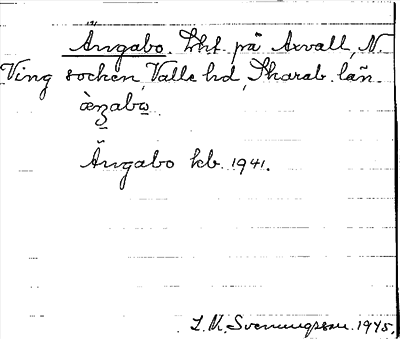 Ängabo. Lht på Axvall, N.
Ving socken, Valle hd, Skarab. län.
ä̀ŋabo̲.
Ängabo kb. 1941.
L. M. Svenungsson. 1945.